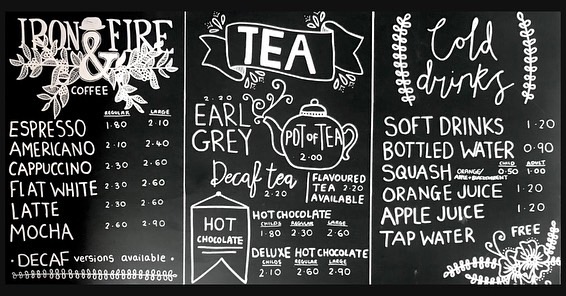 IRON & FIRE
COFFEE
REGULAR LARGE
ESPRESSO 1·80 2·10
AMERICANO 2·10 2·40
CAPPUCCINO 2·30 2·60
FLAT WHITE 2·30 2·60
LATTE 2·30 2·60
MOCHA 2·60 2·90
· DECAF versions available ·
TEA
2·20
EARL
GREY
POT OF TEA
2·00
Decaf tea
2·20
FLAVOURED
TEA 2·20
AVAILABLE
HOT
CHOCOLATE
HOT CHOCOLATE
CHILDS REGULAR LARGE
1·80 2·30 2·60
DELUXE HOT CHOCOLATE
CHILDS REGULAR LARGE
2·10 2·60 2·90
Cold
drinks
SOFT DRINKS 1·20
BOTTLED WATER 0·90
CHILD ADULT
SQUASH ORANGE/ 0·50 1·00
APPLE & BLACKCURRANT
ORANGE JUICE 1·20
APPLE JUICE 1·20
TAP WATER FREE